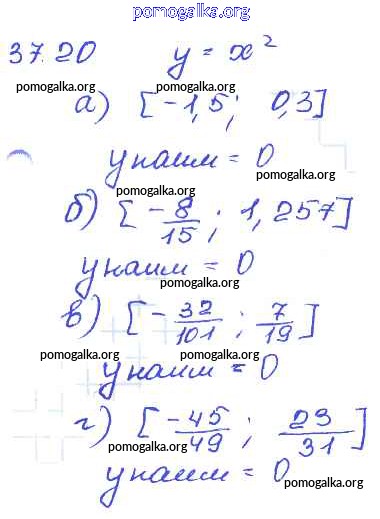 pomogalka.org
37.20 y = x²
pomogalka.org pomogalka.org
а) [-1,5; 0,3]
pomogalka.org
yнаим = 0
pomogalka.org
pomogalka.org
б) [-8/15; 1,257]
yнаим = 0
pomogalka.org
pomogalka.org
в) [-32/101; 7/19]
pomogalka.org pomogalka.org
yнаим = 0
г) [-45/49; 23/31]
pomogalka.org
yнаим = 0
pomogalka.org